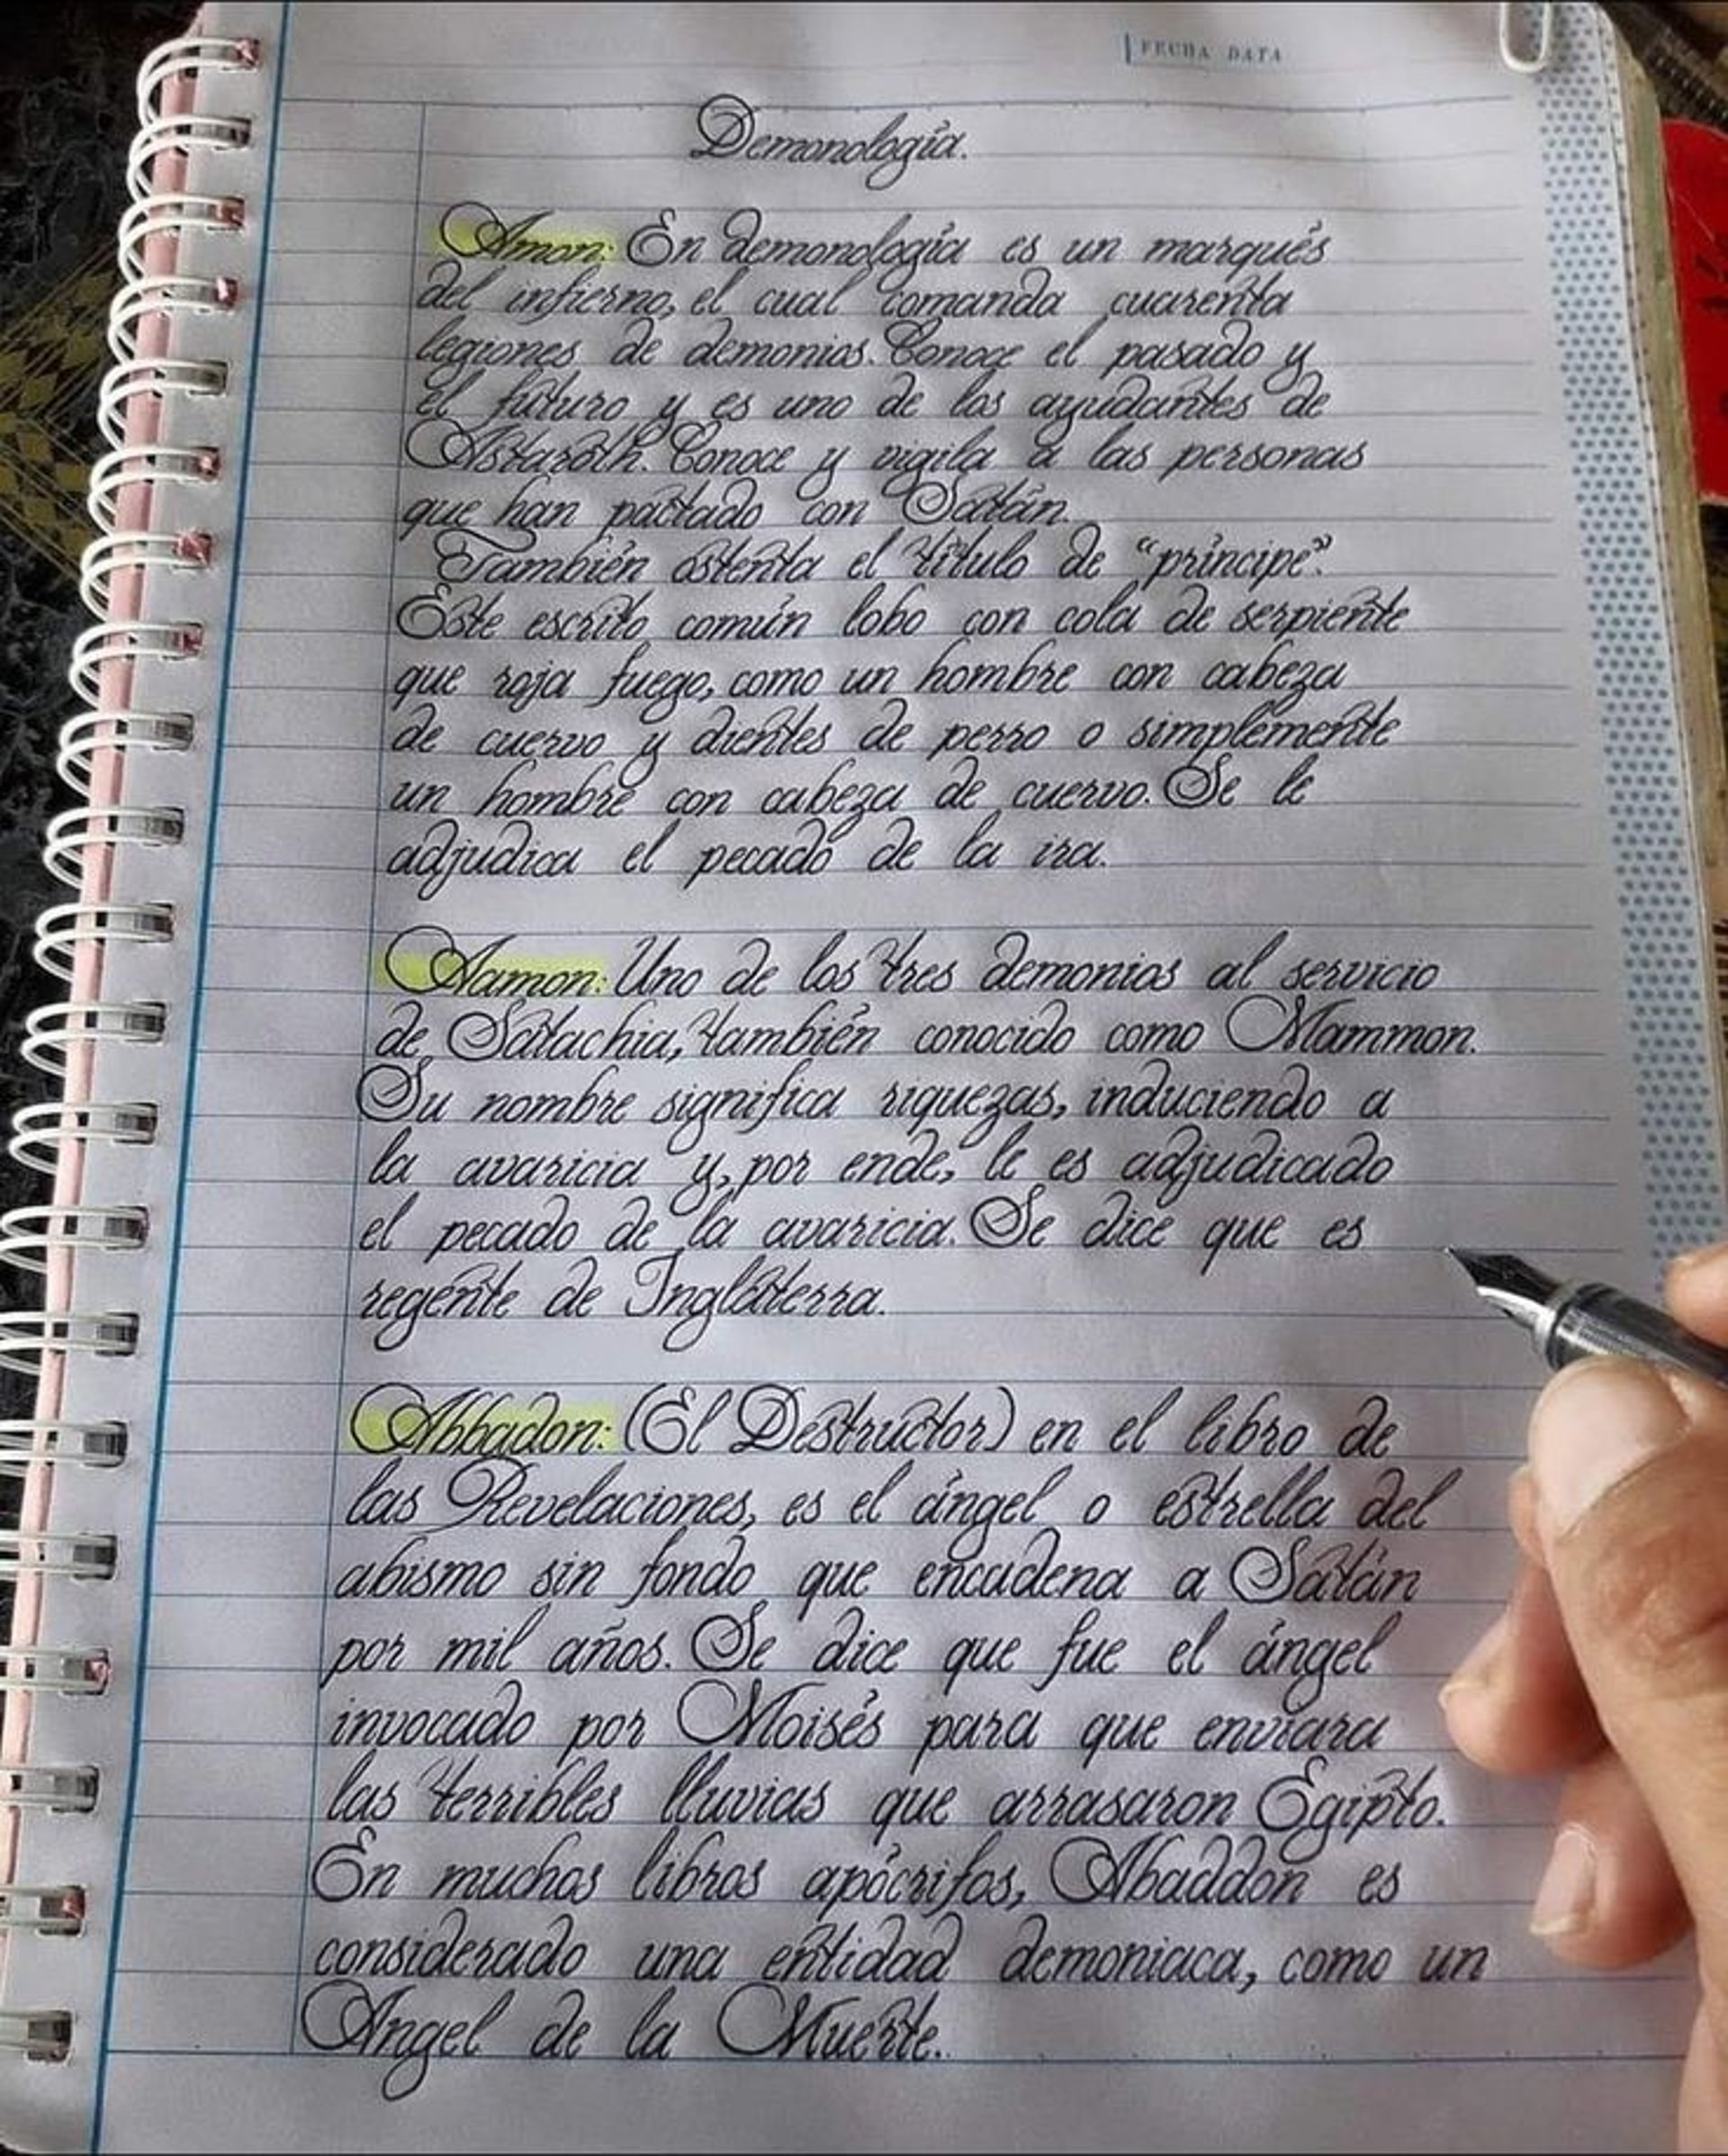 FECHA DATA
Demonología.
Amon: En demonología es un marqués
del infierno, el cual comanda cuarenta
legiones de demonios. Conoce el pasado y
el futuro y es uno de los ayudantes de
Astaroth. Conoce y vigila a las personas
que han pactado con Satán.
También ostenta el título de "príncipe".
Este escrito común lobo con cola de serpiente
que roja fuego, como un hombre con cabeza
de cuervo y dientes de perro o simplemente
un hombre con cabeza de cuervo. Se le
adjudica el pecado de la ira.
Aamon: Uno de los tres demonios al servicio
de Satachia, también conocido como Mammon.
Su nombre significa riquezas, induciendo a
la avaricia y, por ende, le es adjudicado
el pecado de la avaricia. Se dice que es
regente de Inglaterra.
Abbadon: (El Destructor) en el libro de
las Revelaciones, es el ángel o estrella del
abismo sin fondo que encadena a Satán
por mil años. Se dice que fue el ángel
invocado por Moisés para que enviara
las terribles lluvias que arrasaron Egipto.
En muchos libros apócrifos, Abaddon es
considerado una entidad demoniaca, como un
Angel de la Muerte.